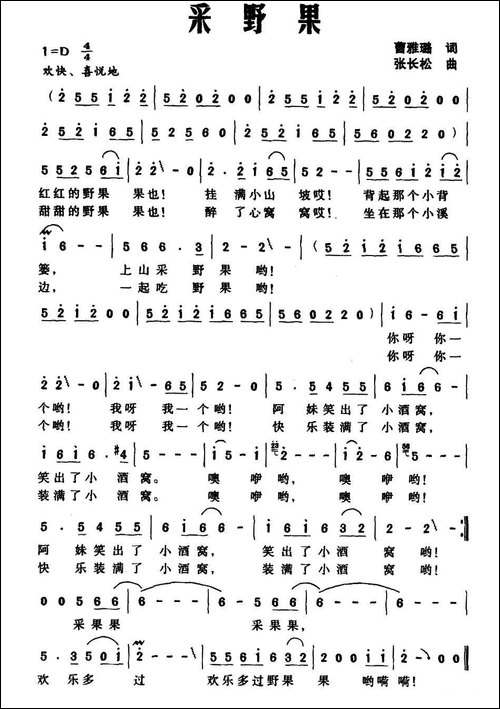 采野果
1=D 4/4
曹雅璐 词
欢快、喜悦地
张长松 曲
(2 5 5 i 2 2 | 5 2 0 2 0 0 | 2 5 5 i 2 2 | 5 2 0 2 0 0 |
2 5 2 i 6 5 | 5 2 i 2 0 0 | 5 2 2 i 6 5 | 5 2 0 2 2 0) |
5 5 2 5 6 i | 2 2 - 0 | 2 . 2 i 6 5 | 5 - - - | 0 2 2 i 2 i 2 |
红红的野果 果也! 挂 满小山 坡哎! 背起那个小背
甜甜的野果 果也! 醉 了心窝 窝哎! 坐在那个小溪
i 6 - - | 5 6 6 . 3 | 2 - 2 - | (5 2 i 2 i 2 6 5 |
篓, 上山采 野果 哟!
边, 一起吃 野果 哟!
5 2 i 2 0 0 | 5 2 i 2 i 6 5 i | 5 6 0 2 2 0) | i 6 - 6 i |
你呀 你一
你呀 你一
2 2 - 0 | 2 i 2 - 6 5 | 5 . 5 4 5 5 | 6 i 6 6 - |
个哟! 我呀 我一个哟! 阿 妹笑出了 小酒窝,
个哟! 我呀 我一个哟! 快 乐装满了 小酒窝,
i 6 i 6 . #4 | 5 - - - | i 5 - i | 2 - - - | i 2 - i | 6 - - - |
笑出了小 酒窝。 噢 咿哟, 噢 咿哟!
装满了小 酒窝。 噢 咿哟, 噢 咿哟!
5 . 5 4 5 5 | 6 i 6 6 - | i 6 i 6 3 2 | 2 - 2 - :||
阿 妹笑出了 小酒窝, 笑出了小酒 窝 哟!
快 乐装满了 小酒窝, 装满了小酒 窝 哟!
0 0 5 6 6 | 6 - - - | i - - 6 6 | 6 - - - |
采果果 采果果,
5 . 3 5 0 i | 2 - - - | 5 2 5 6 i 6 3 2 | 2 - - - | 0 2 0 2 | 2 0 0 0 ||
欢 乐多 过 欢乐多过野果 果 哟嗬嗬!